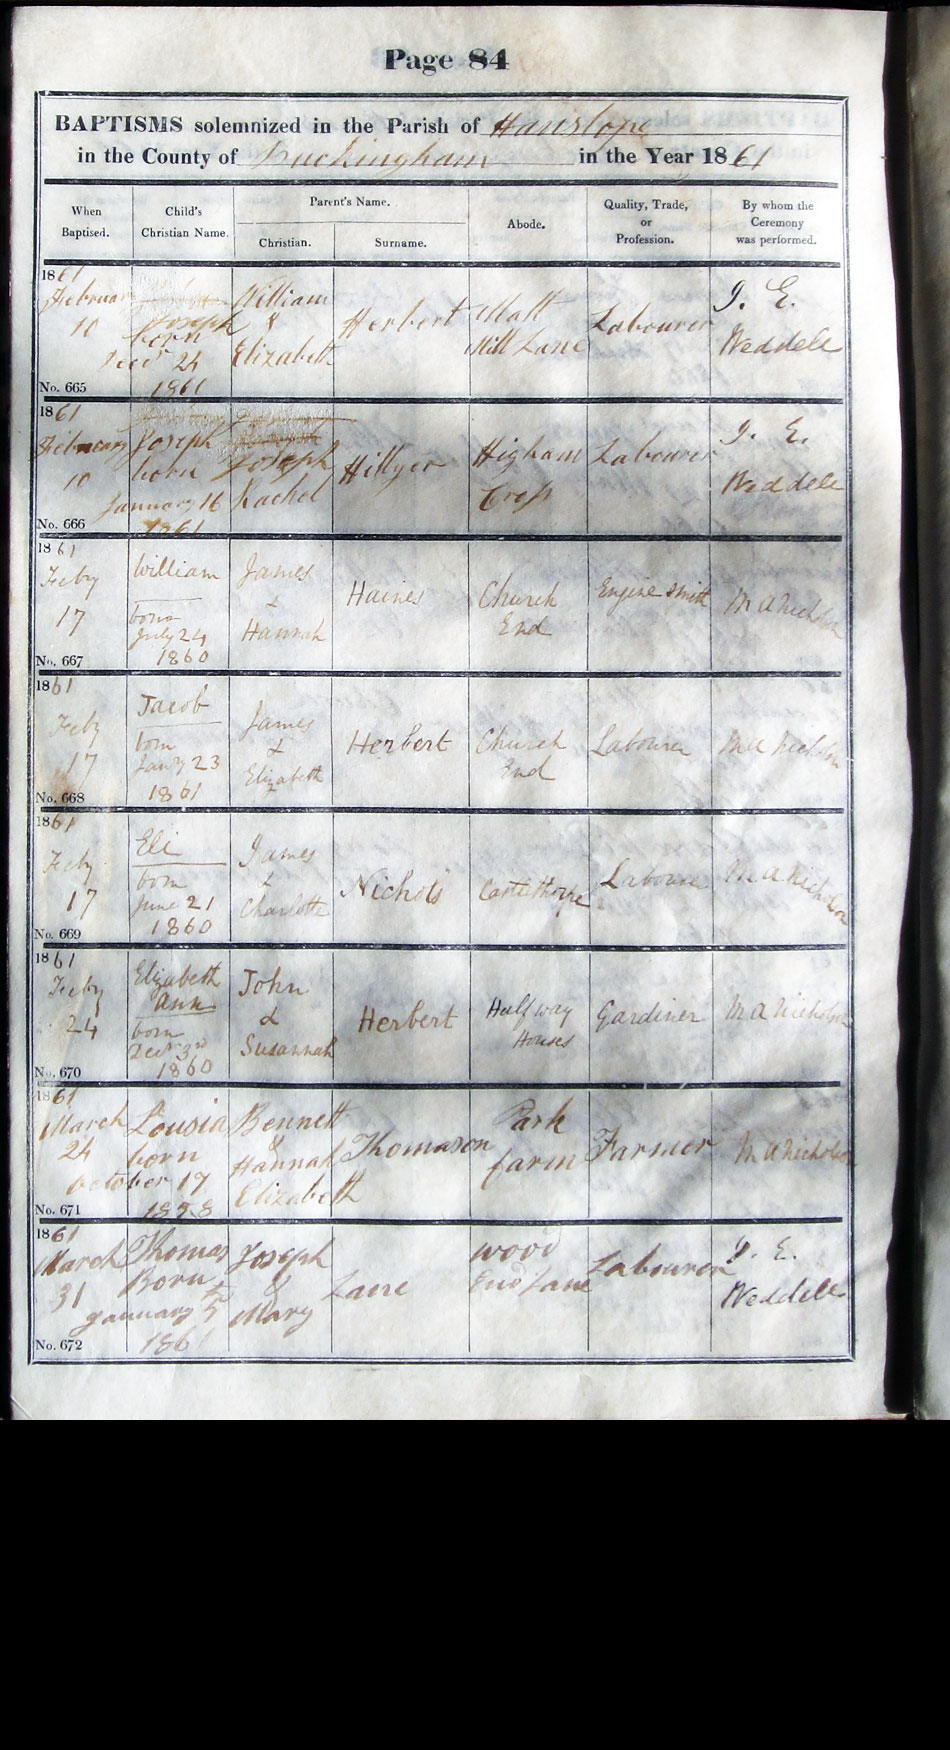 Page 84
BAPTISMS solemnized in the Parish of Hanslope
in the County of Buckingham in the Year 1861
When Baptised.
Child's Christian Name.
Parent's Name.
Christian.
Surname.
Abode.
Quality, Trade, or Profession.
By whom the Ceremony was performed.
1861
February
10
No. 665
Joseph
born
Decr 24
1861
William
&
Elizabeth
Herbert
Malt
Mill Lane
Labourer
J. E.
Weddell
1861
February
10
No. 666
Joseph
born
January 16
1861
Joseph
Rachel
Hillyer
Higham
Cross
Labourer
J. E.
Weddell
1861
Feby
17
No. 667
William
born
July 24
1860
James
&
Hannah
Haines
Church
End
Engine Smith
M A Nicholson
1861
Feby
17
No. 668
Jacob
born
Jany 23
1861
James
&
Elizabeth
Herbert
Church
End
Labourer
M A Nicholson
1861
Feby
17
No. 669
Eli
born
June 21
1860
James
&
Charlotte
Nichols
Castlethorpe
Labourer
M A Nicholson
1861
Feby
24
No. 670
Elizabeth
Ann
born
Decr 3rd
1860
John
&
Susannah
Herbert
Half way
Houses
Gardiner
M A Nicholson
1861
March
24
No. 671
Lousia
born
october 19
1858
Bennett
&
Hannah
Elizabeth
Thomason
Park
farm
Farmer
M A Nicholson
1861
March
31
No. 672
Thomas
Born
January 5th
1861
Joseph
&
Mary
Lane
Wood
End Lane
Labourer
J. E.
Weddell